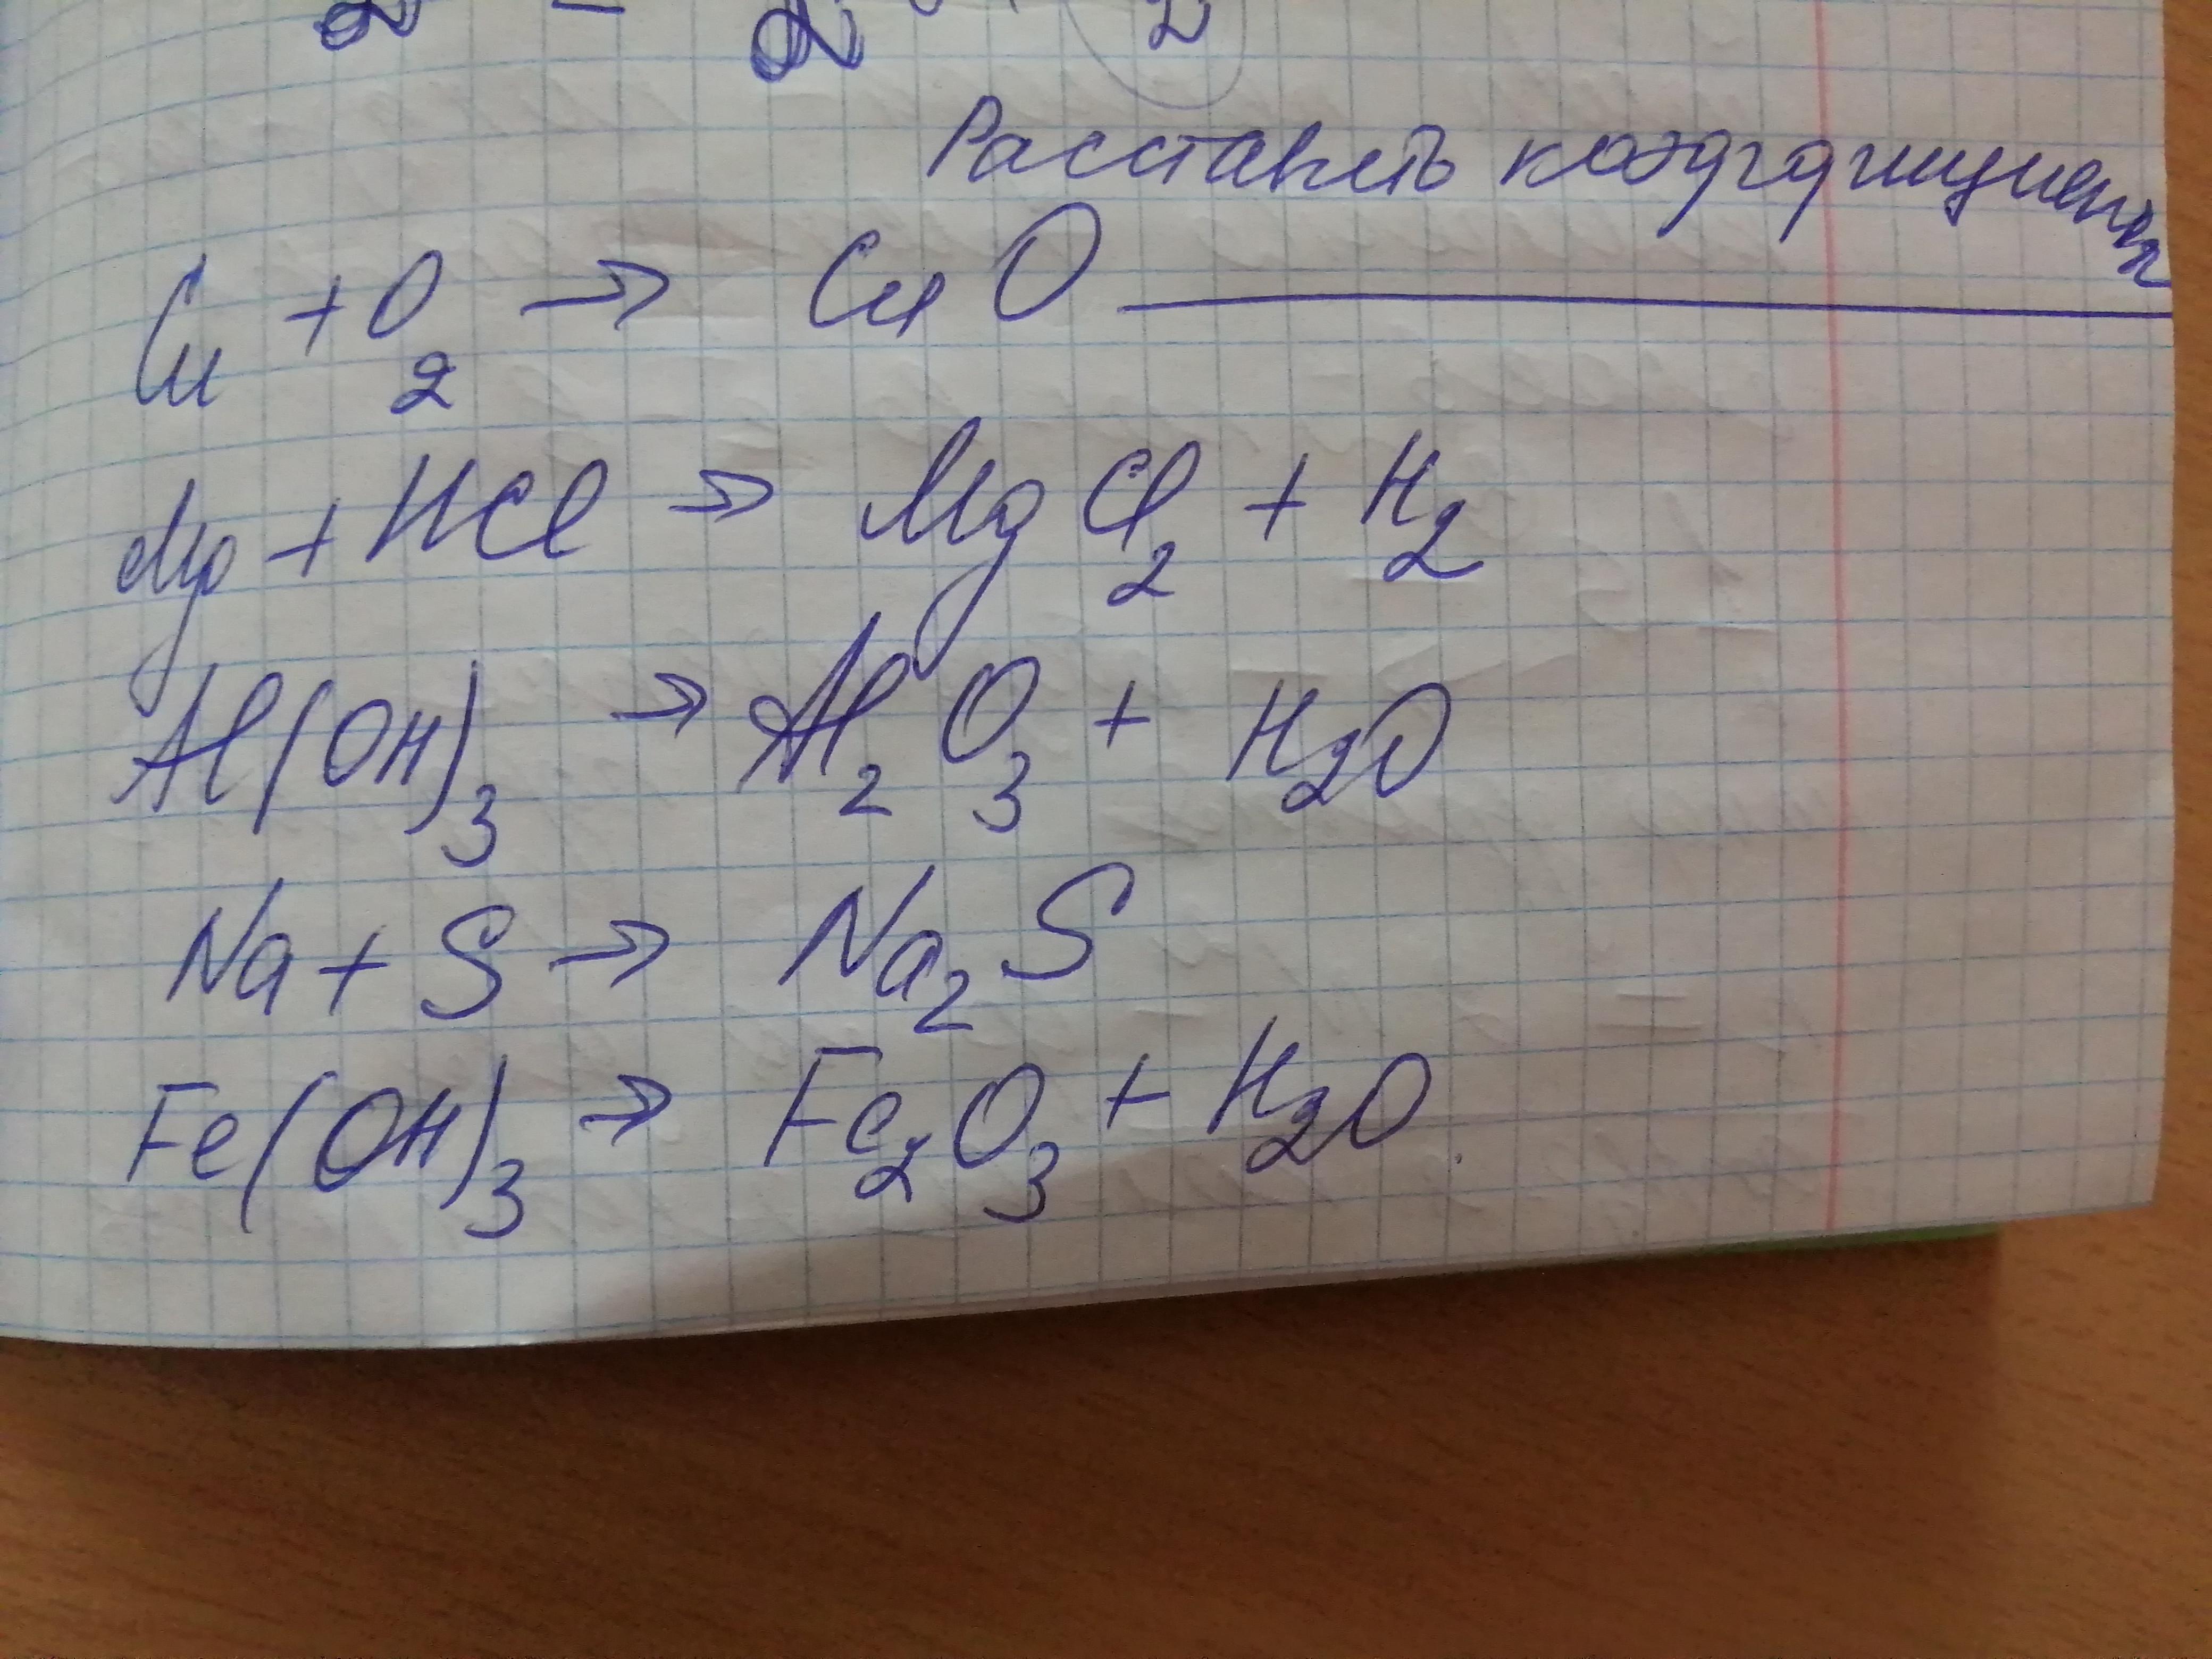 2 - 2 2
Расставить коэффициенты
Cu + O2 → CuO
Mg + HCl → MgCl2 + H2
Al(OH)3 → Al2O3 + H2O
Na + S → Na2S
Fe(OH)3 → Fe2O3 + H2O.